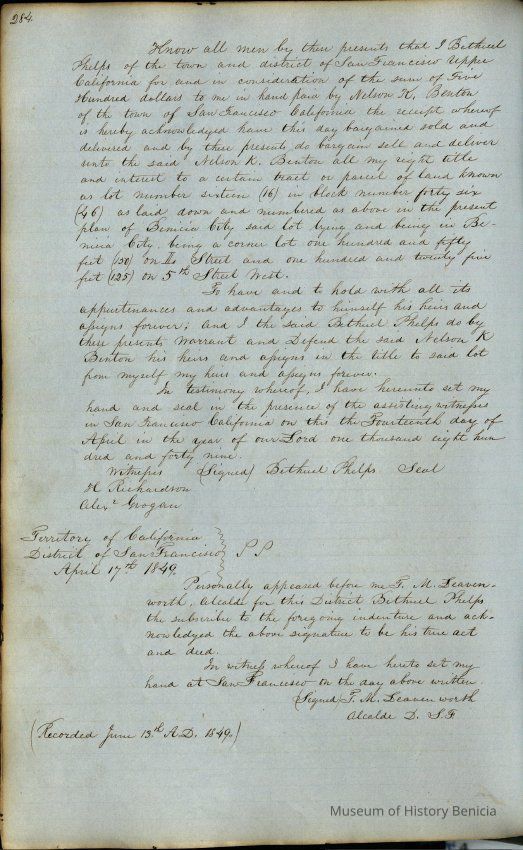 284
Know all men by these presents that I Bethuel
Phelps of the town and district of San Francisco Upper
California for and in consideration of the sum of Five
Hundred dollars to me in hand paid by Nelson K. Benton
of the town of San Francisco California the receipt whereof
is hereby acknowledged have this day bargained sold and
delivered and by these presents do bargain sell and deliver
unto the said Nelson K. Benton all my right title
and interest to a certain tract or parcel of land known
as lot number sixteen (16) in block number forty six
(46) as laid down and numbered as above in the present
plan of Benicia City said lot lying and being in Be-
nicia City, being a corner lot one hundred and fifty
feet (150) on Street and one hundred and twenty five
feet (125) on 5th Street West.
To have and to hold with all its
appurtenances and advantages to himself his heirs and
assigns forever; and I the said Bethuel Phelps do by
these presents Warrant and Defend the said Nelson K
Benton his heirs and assigns in the title to said lot
from myself my heirs and assigns forever.
In testimony whereof, I have hereunto set my
hand and seal in the presence of the assisting witnesses
in San Francisco California on this the Fourteenth day of
April in the year of our Lord one thousand eight hun
dred and forty nine.
Witness (Signed) Bethuel Phelps Seal
H Richardson
Alexr Grogan
Territory of California
District of San Francisco S S
April 17th 1849
Personally appeared before me T. M. Leaven-
worth, Alcalde for this District Bethuel Phelps
the subscribe to the foregoing indenture and ack-
nowledged the above signature to be his true act
and deed.
In witness whereof I have hereto set my
hand at San Francisco on the day above written.
(Signed) T. M. Leaven worth
Alcalde D. S. F
(Recorded June 13th A.D. 1849.)
Museum of History Benicia